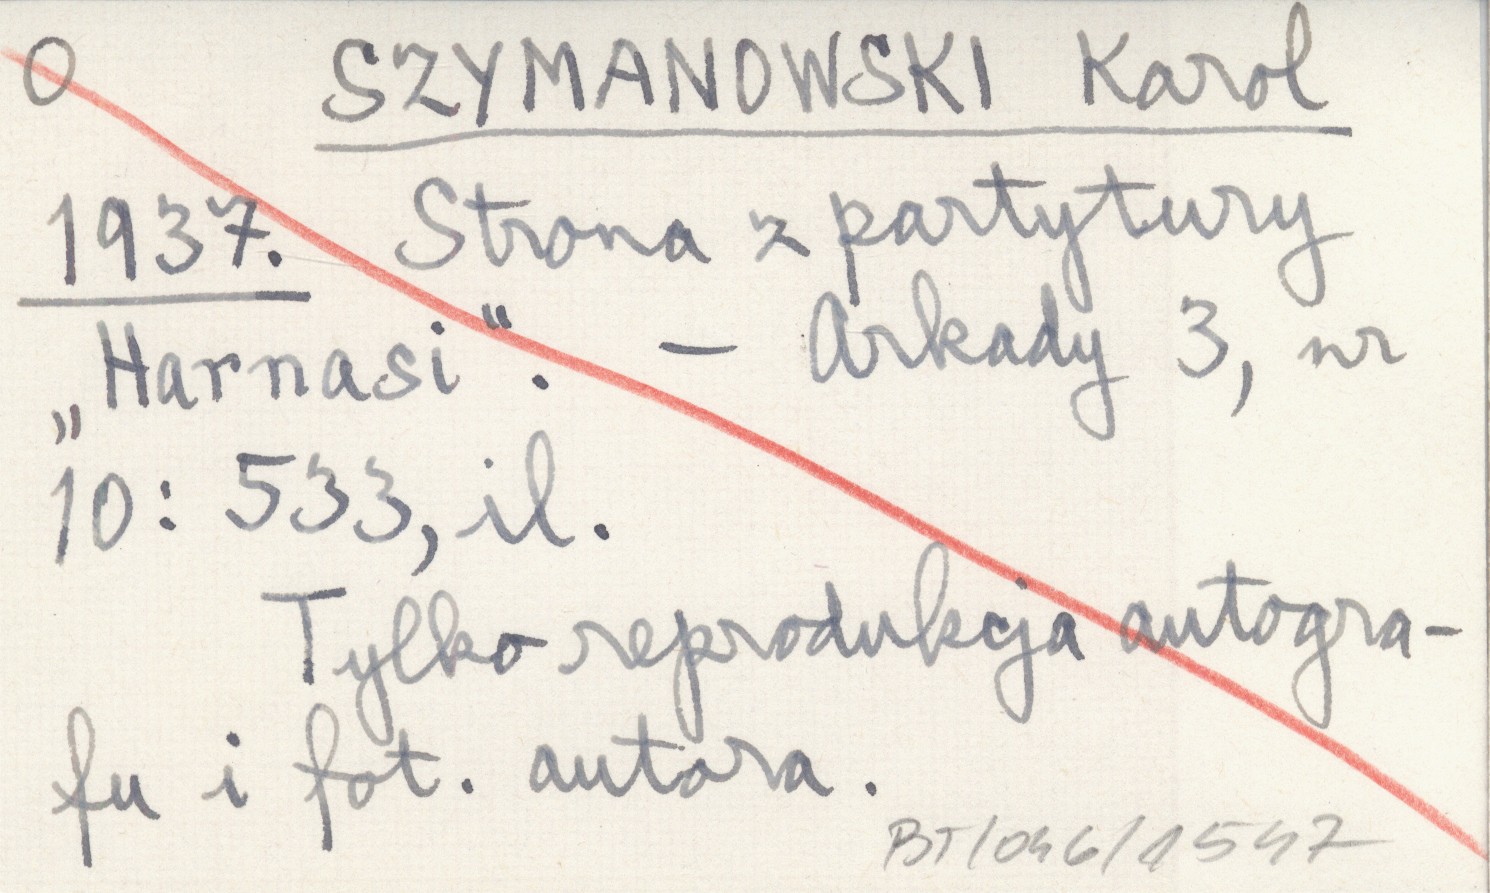 O SZYMANOWSKI Karol
1937. Strona z partytury
„Harnasi". — Arkady 3, nr
10: 533, il.
Tylko reprodukcja autogra-
fu i fot. autora.
BT/046/1547